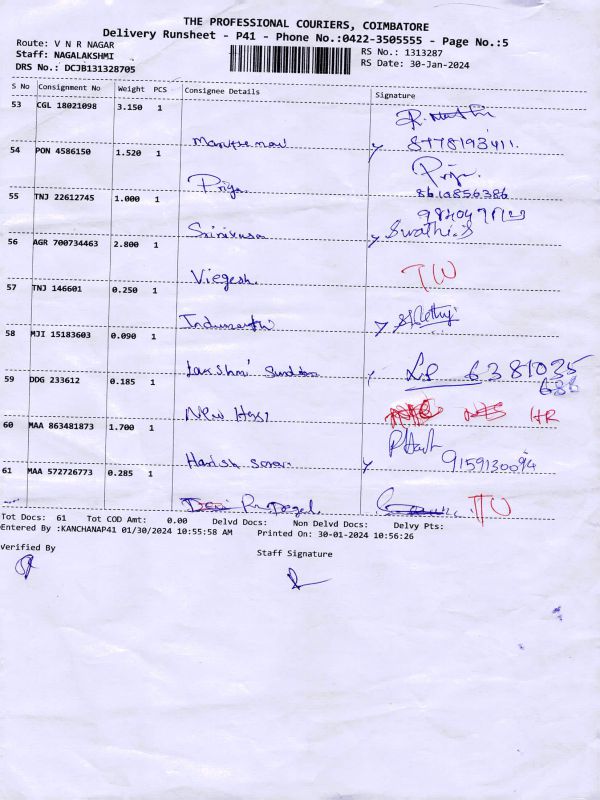 THE PROFESSIONAL COURIERS, COIMBATORE
Delivery Runsheet - P41 - Phone No.:0422-3505555 - Page No.:5
Route: V N R NAGAR
Staff: NAGALAKSHMI
DRS No.: DCJB131328705
RS No.: 1313287
RS Date: 30-Jan-2024
S No Consignment No Weight PCS Consignee Details Signature
53 CGL 18021098 3.150 1
8778193411.
54 PON 4586150 1.520 1
Priya Priya
8610856386
55 TNJ 22612745 1.000 1
Srinivasan Swathi.S
56 AGR 700734463 2.800 1
Viegesh. TW
57 TNJ 146601 0.250 1
Indumathi
58 MJI 15183603 0.090 1
Lakshmi 6381035
633
59 DDG 233612 0.185 1
New Hessi HR
60 MAA 863481873 1.700 1
Harish
9159130094
61 MAA 572726773 0.285 1
Tot Docs: 61 Tot COD Amt: 0.00 Delvd Docs: Non Delvd Docs: Delvy Pts:
Entered By :KANCHANAP41 01/30/2024 10:55:58 AM Printed On: 30-01-2024 10:56:26
Verified By
Staff Signature